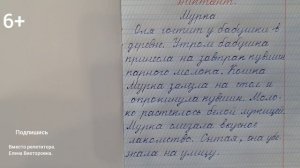 6+
Диктант.
Мурка
Оля гостит у бабушки в
деревне. Утром бабушка
принесла на завтрак кувшин
парного молока. Кошка
Мурка залезла на стол и
опрокинула кувшин. Моло-
ко растеклось белой лужицей.
Мурка слизала вкусное
лакомство. Сытая, она убе-
жала на улицу.
Подпишись
Вместо репетитора.
Елена Викторовна.